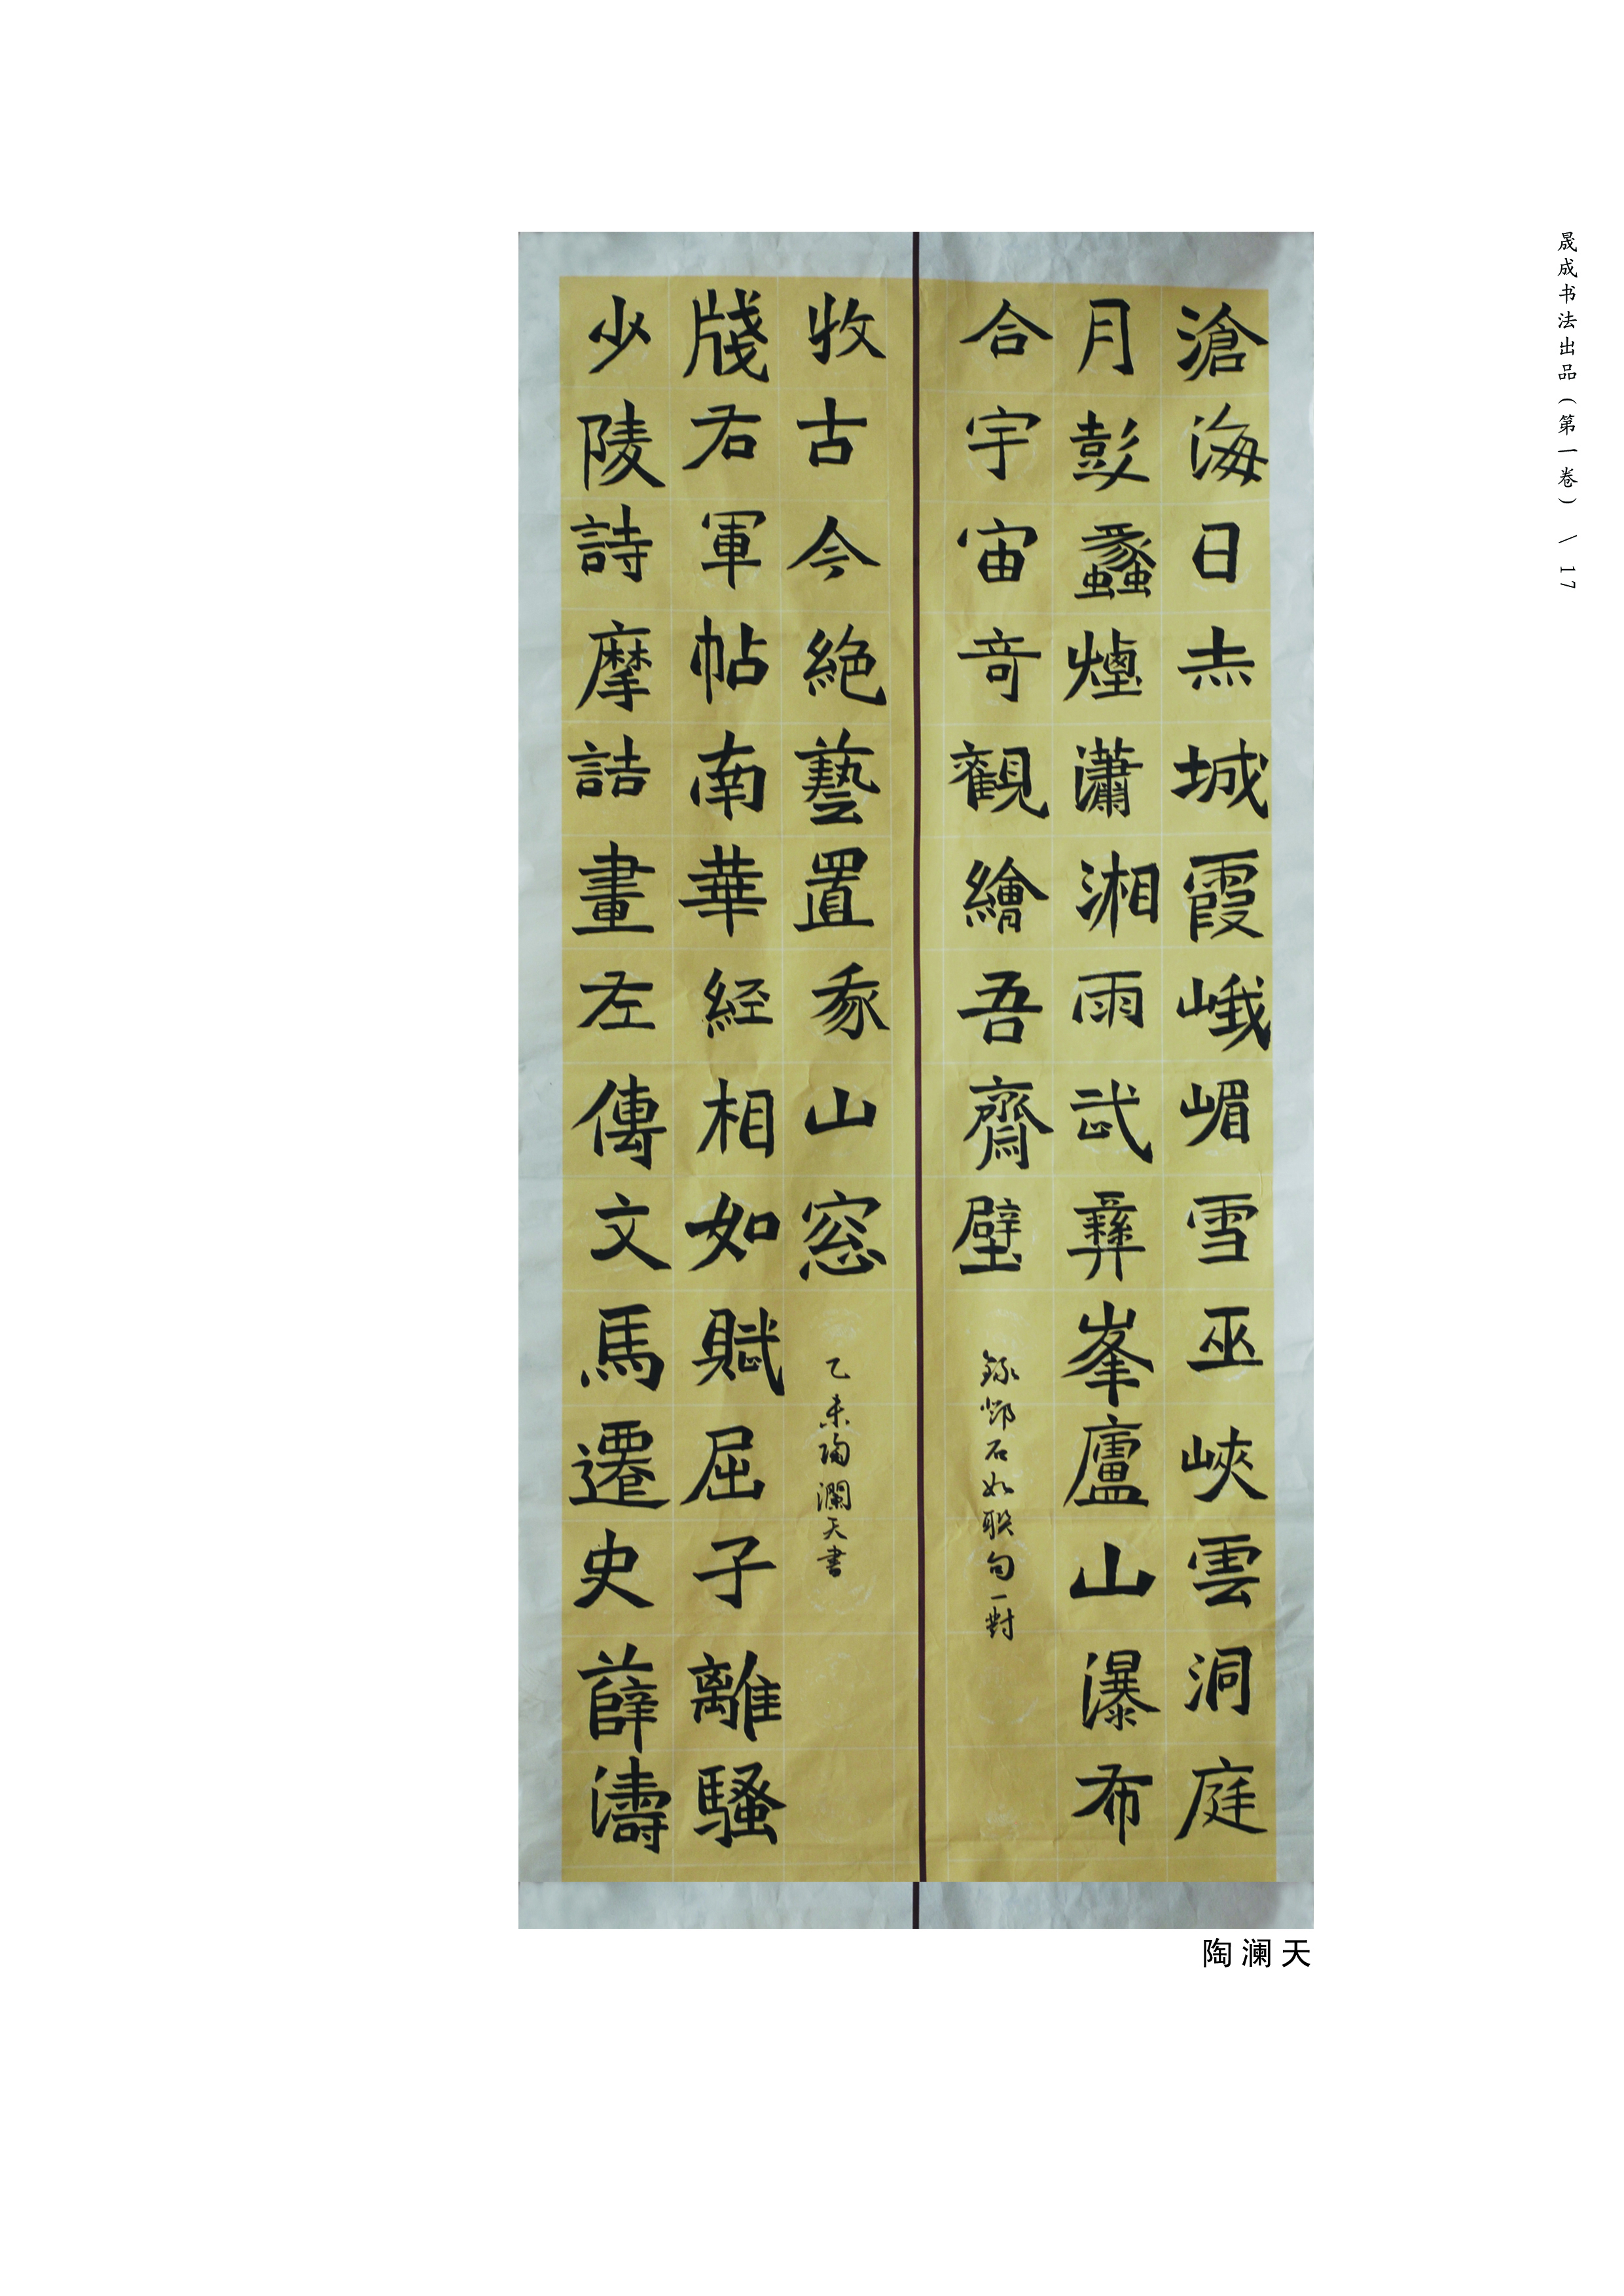 晟成书法出品(第一卷) \ 17
滄海日赤城霞峨嵋雪巫峽雲洞庭
月彭蠡煙瀟湘雨武彝峯廬山瀑布
合宇宙奇觀繪吾齋壁
錄鄧石如联句一對
少陵詩摩詰畫左傳文馬遷史薛濤
牋右軍帖南華経相如賦屈子離騷
收古今絕藝置我山窓
乙未陶瀾天書
陶澜天